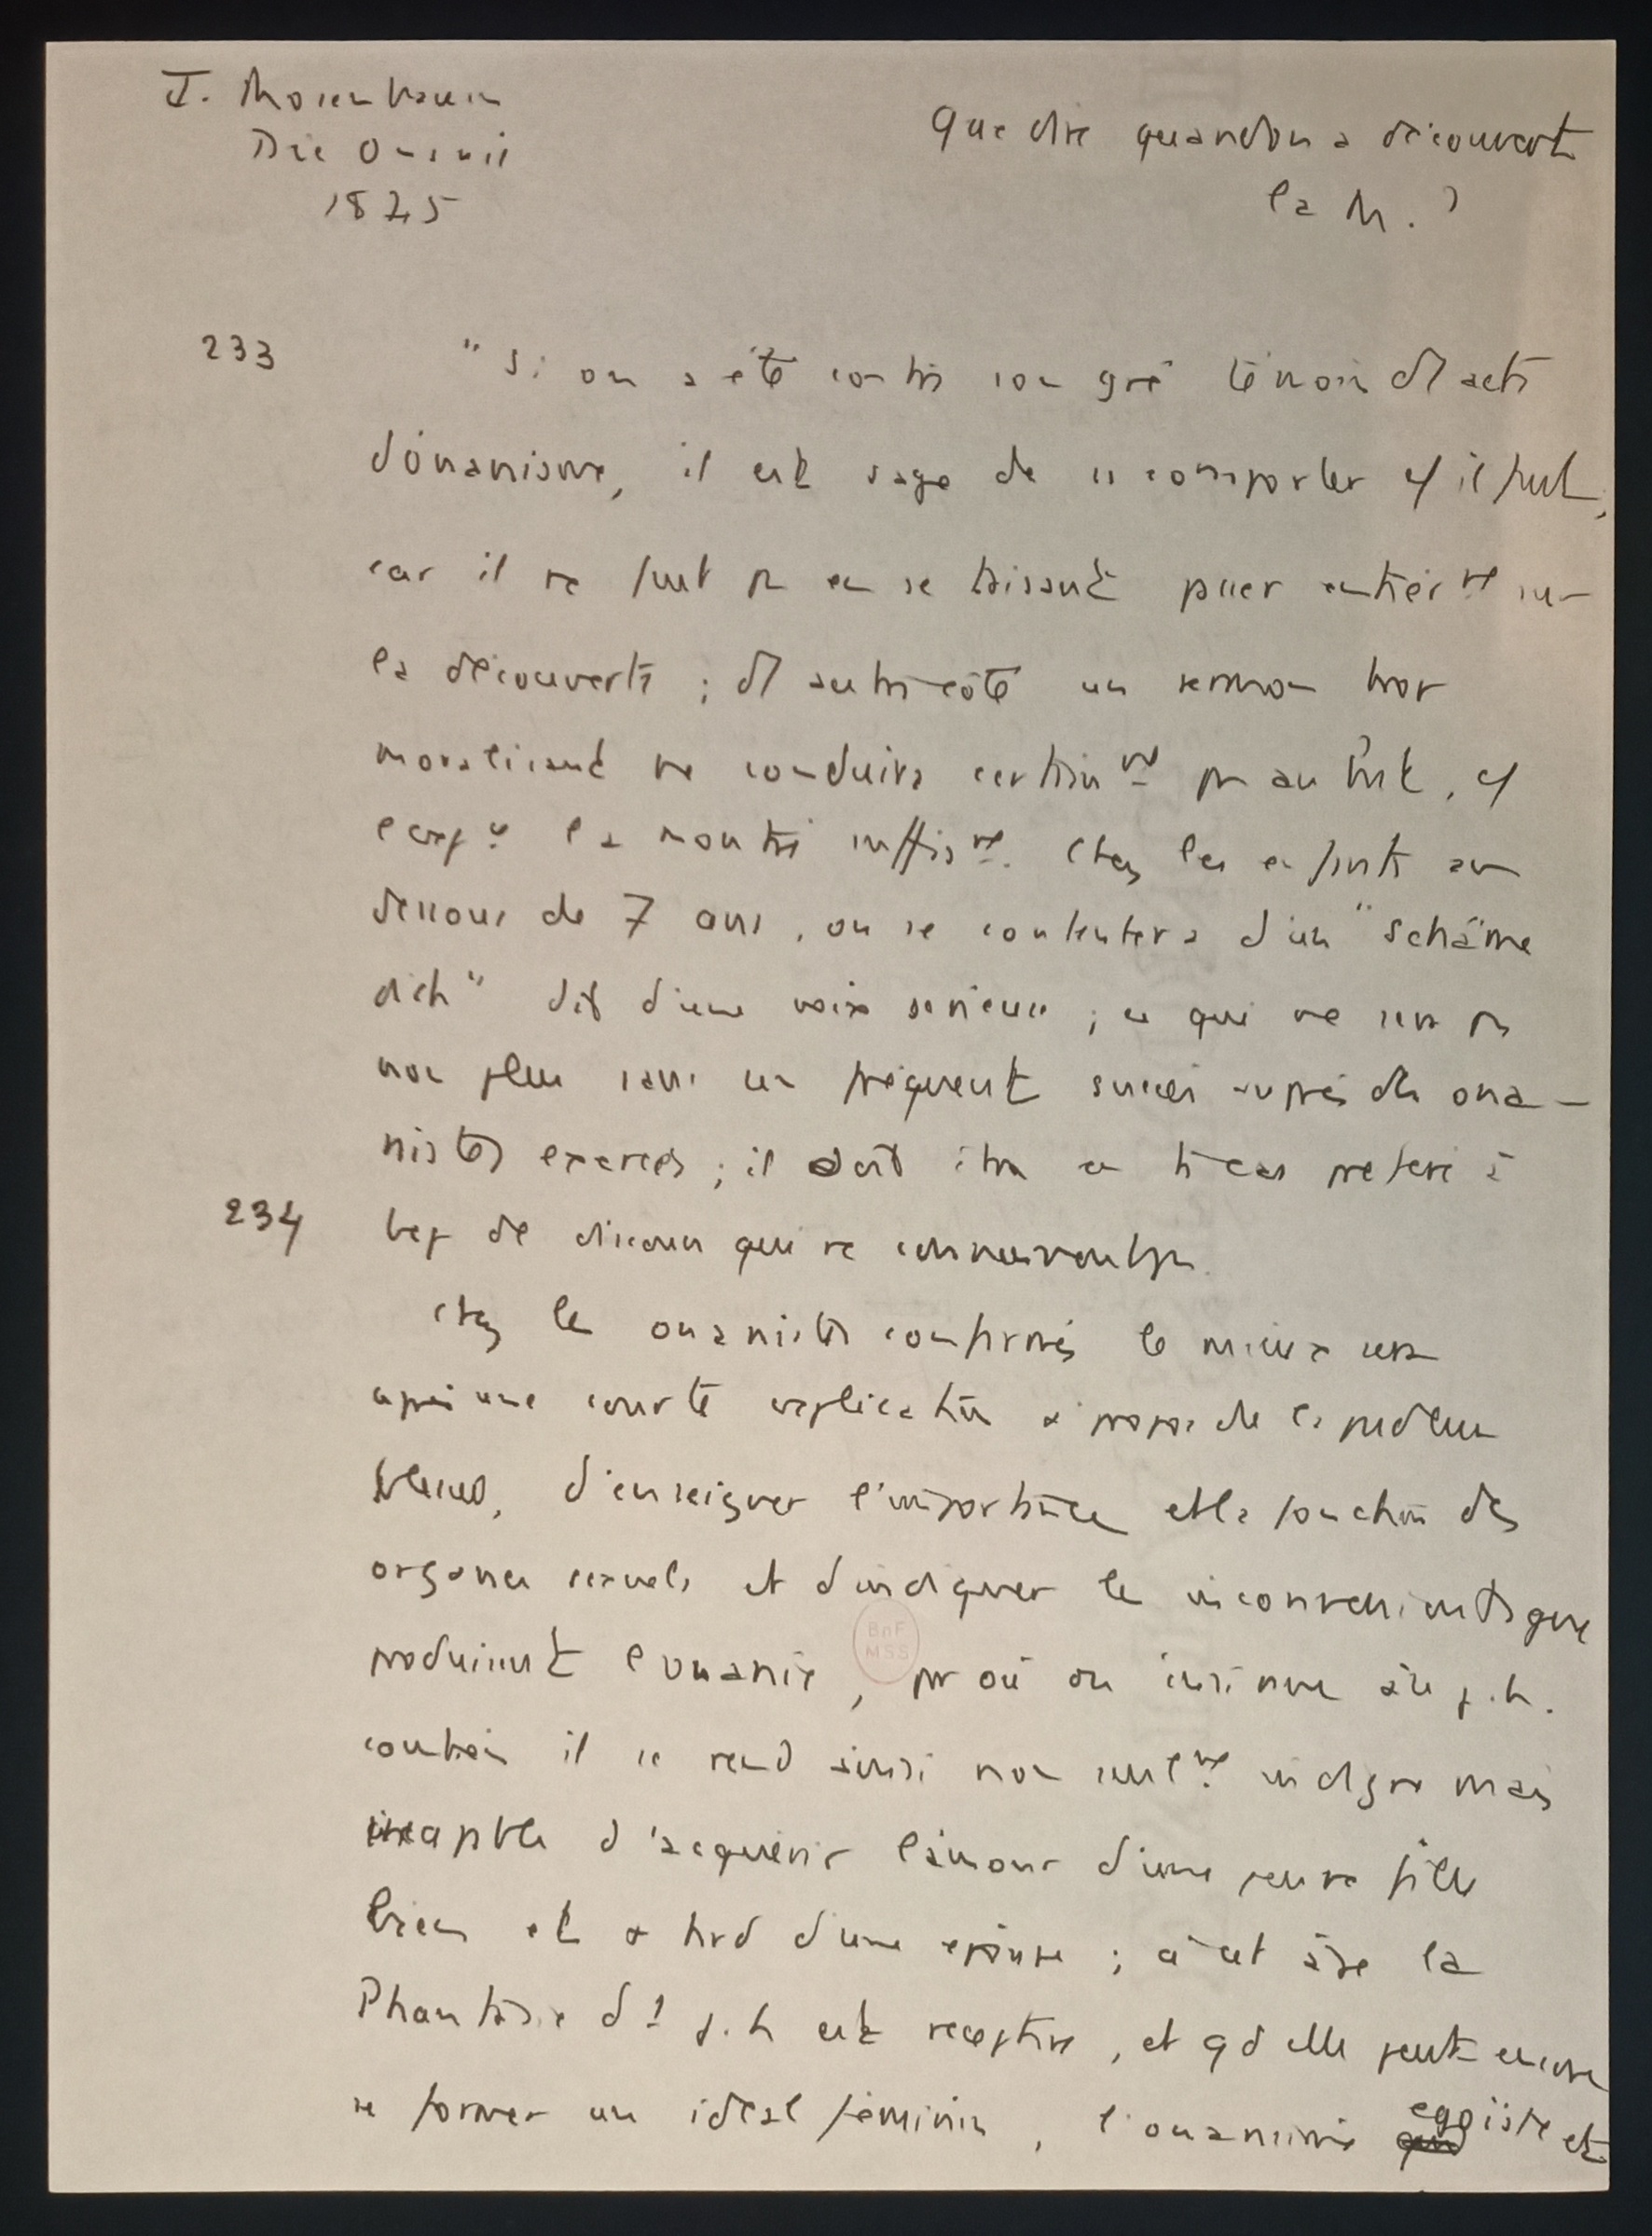 J. Rosenbaum
Die Onanie
1845
Que dire quand on a découvert
la M. ?
233
"Si on a été contre son gré témoin d'1 acte
d'onanisme, il est sage de se comporter cf il faut,
car il ne faut pas en se taisant passer entièrmt sur
la découverte ; d'1 autre côté un sermon trop
moralisant ne conduira certainmt pas au but, cf
l'expce l'a montré suffismt. Chez les enfants au
dessous de 7 ans, on se contentera d'un "schäme
dich" dit d'une voix sérieuse ; ce qui ne sera pas
non plus sans un fréquent succès auprès des ona-
nistes exercés ; il doit être en ts cas préféré à
234
bcp de discours qui ne conviennent pas.
Chez les onanistes confirmés le mieux sera
après une courte explication à propos de la pudeur
blessée, d'enseigner l'importance et la fonction des
organes sexuels et d'indiquer les inconvénients que
produisent l'onanie, par où on insinue au j.h.
combien il se rend ainsi non seulmt indigne mais
incapable d'acquérir l'amour d'une jeune fille
bien et + tard d'une épouse ; à cet âge la
Phantasie d'1 j.h est réceptive, et qd elle peut encore
se former un idéal féminin, l'onanisme egoïste et
BnF
MSS